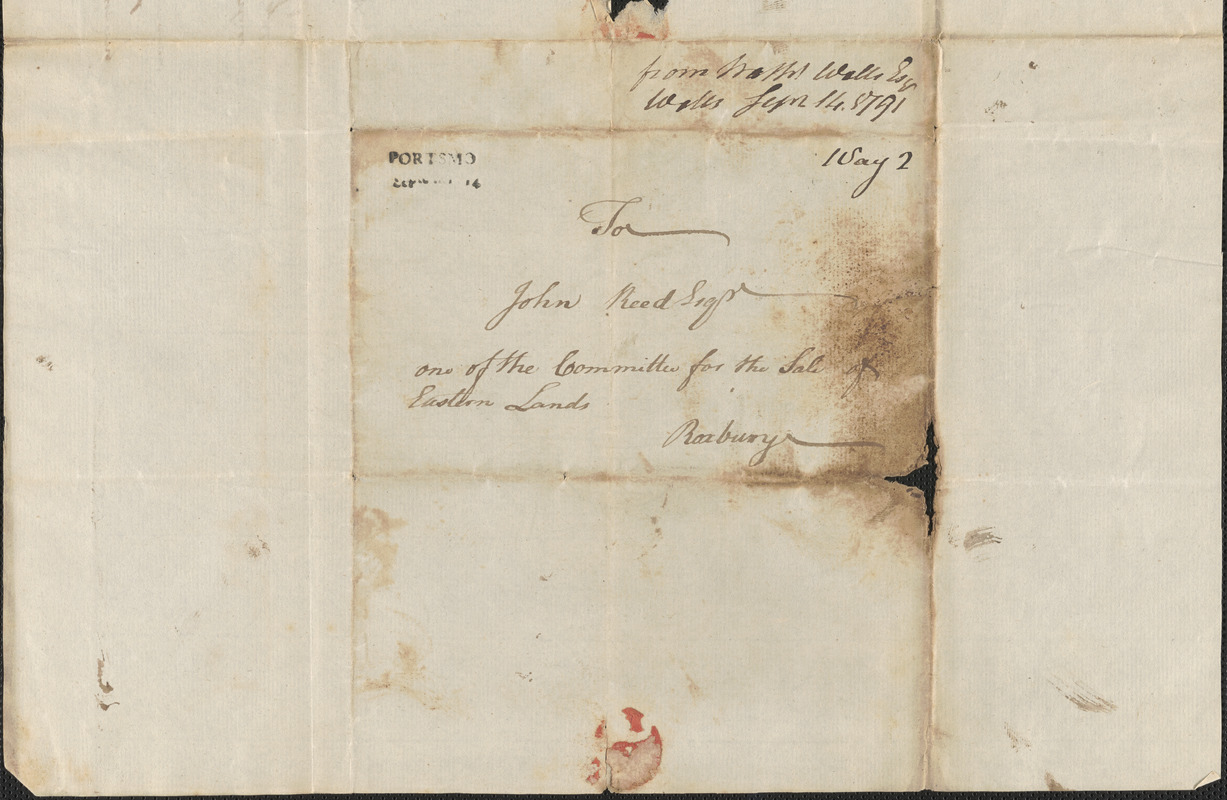 from Nathl Wells Esqr
Wells Sepr 14. 1791
PORTSMO
14
Way 2
To
John Reed Esqr
one of the Committee for the Sale of
Eastern Lands
Roxbury